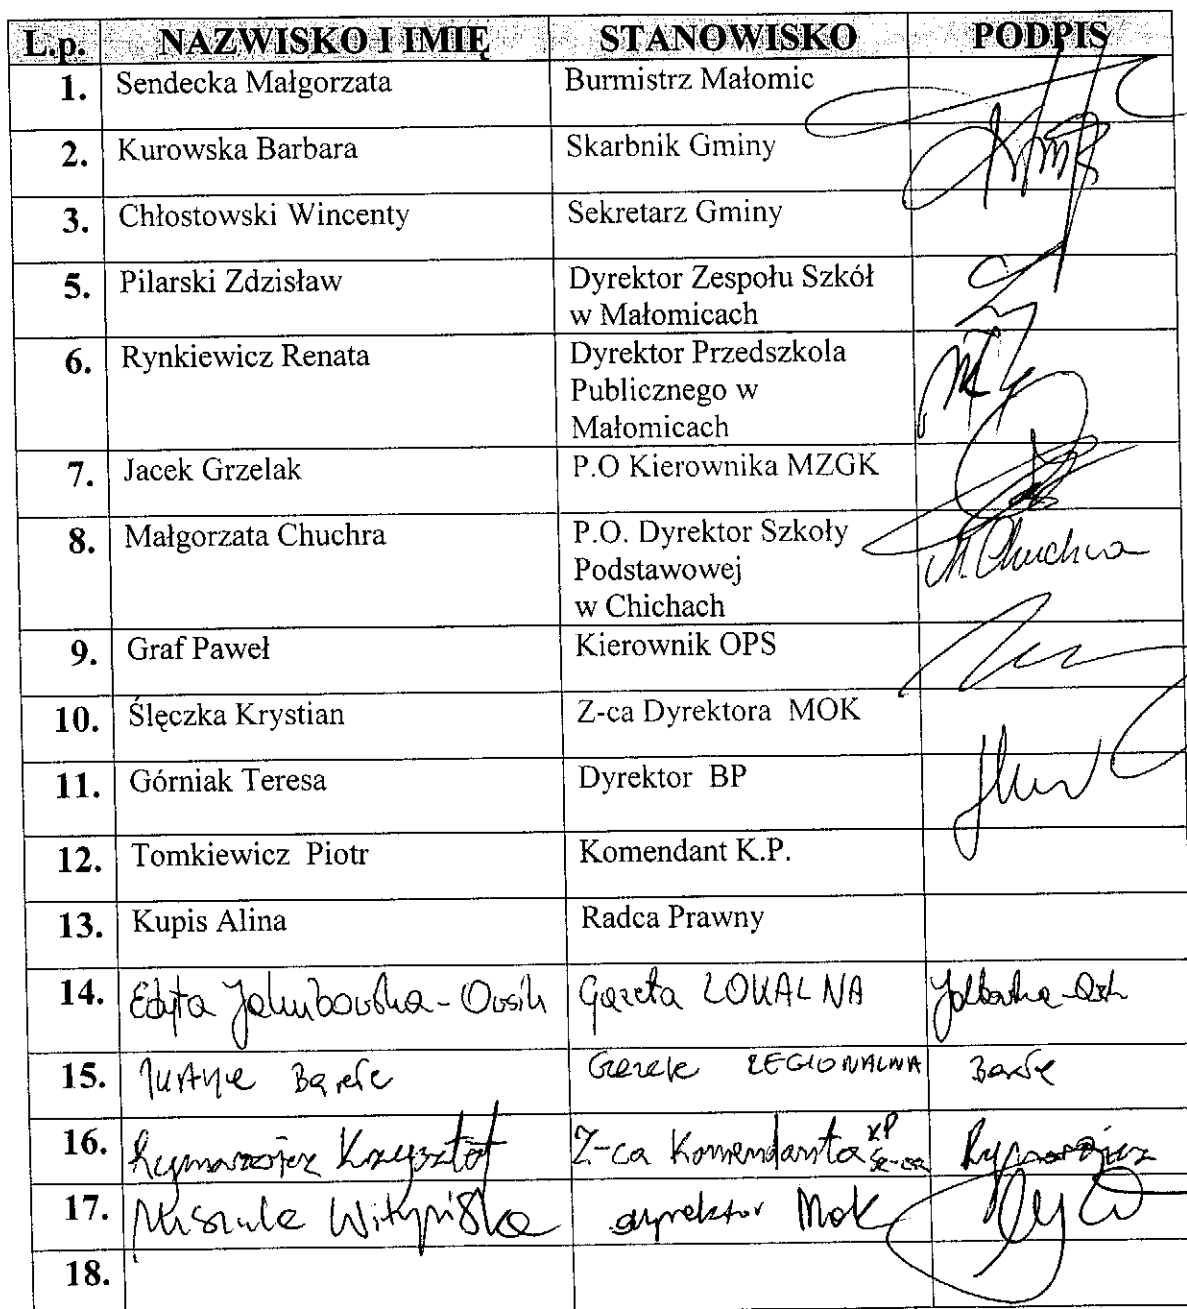 L.p. NAZWISKO I IMIĘ STANOWISKO PODPIS
1. Sendecka Małgorzata Burmistrz Małomic
2. Kurowska Barbara Skarbnik Gminy
3. Chłostowski Wincenty Sekretarz Gminy
5. Pilarski Zdzisław Dyrektor Zespołu Szkół
w Małomicach
6. Rynkiewicz Renata Dyrektor Przedszkola
Publicznego w
Małomicach
7. Jacek Grzelak P.O Kierownika MZGK
8. Małgorzata Chuchra P.O. Dyrektor Szkoły M. Chuchra
Podstawowej
w Chichach
9. Graf Paweł Kierownik OPS
10. Ślęczka Krystian Z-ca Dyrektora MOK
11. Górniak Teresa Dyrektor BP
12. Tomkiewicz Piotr Komendant K.P.
13. Kupis Alina Radca Prawny
14. Edyta Jakubowska-Owsik Gazeta LOKALNA
15. REGIONALNA
16. Krzysztof Z-ca Komendanta KP
17. dyrektor MOK
18.